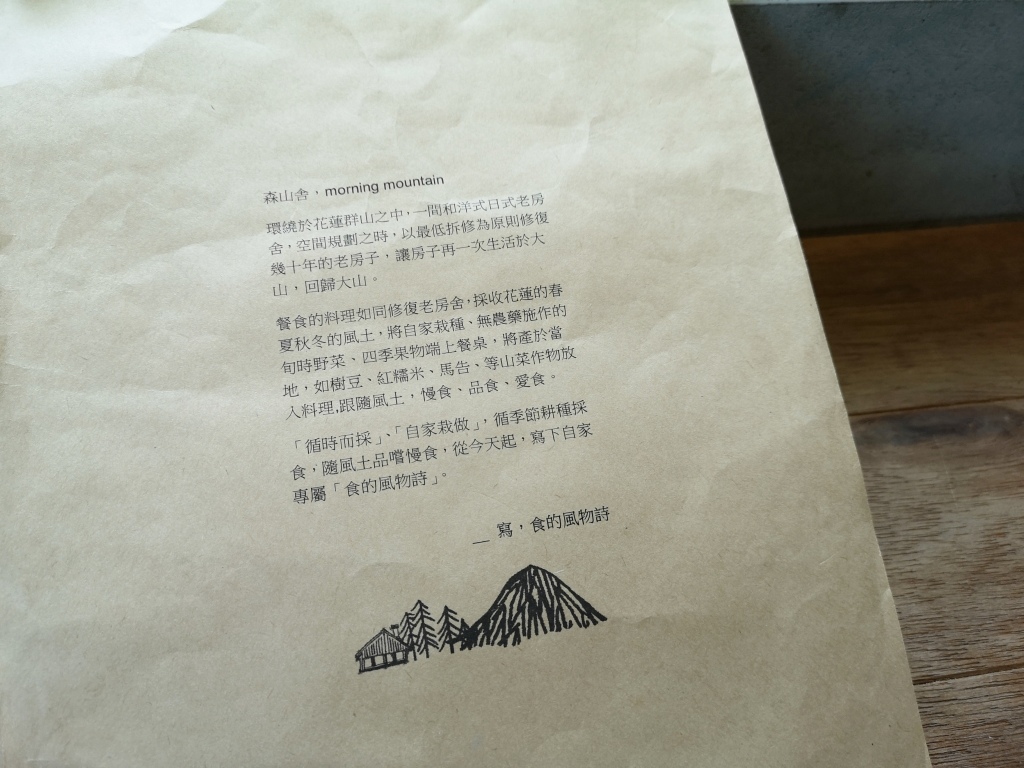 森山舍，morning mountain
環繞於花蓮群山之中，一間和洋式日式老房
舍，空間規劃之時，以最低拆修為原則修復
幾十年的老房子，讓房子再一次生活於大
山，回歸大山。
餐食的料理如同修復老房舍，採收花蓮的春
夏秋冬的風土，將自家栽種、無農藥施作的
旬時野菜、四季果物端上餐桌，將產於當
地，如樹豆、紅糯米、馬告、等山菜作物放
入料理,跟隨風土，慢食、品食、愛食。
「循時而採」、「自家栽做」，循季節耕種採
食，隨風土品嚐慢食，從今天起，寫下自家
專屬「食的風物詩」。
＿ 寫，食的風物詩